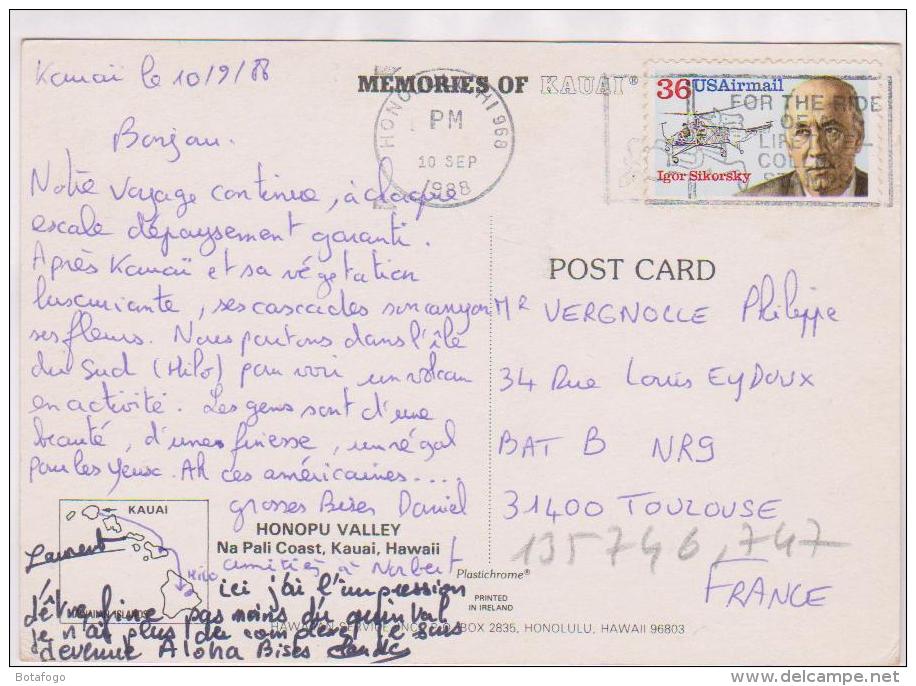 Kauaï le 10/9/88
MEMORIES OF KAUAI®
HONOLULU HI 968
PM
10 SEP
1988
36 USAirmail
Igor Sikorsky
FOR THE RIDE
OF
LIFE
Bonjour.
Notre voyage continue, à chaque
escale dépaysement garanti.
Après Kauaï et sa végétation
luxuriante, ses cascades son canyon
ses fleurs. Nous partons dans l'île
du Sud (Hilo) pour voir un volcan
en activité. Les gens sont d'une
beauté, d'une finesse, un régal
pour les yeux. Ah ces américaines....
grosses Bises Daniel
amitiés à Norbert
POST CARD
Mr VERGNOLLE Philippe
34 Rue Louis EYDOUX
BAT B NR9
31400 TOULOUSE
135746,747
FRANCE
KAUAI
Hilo
HAWAIIAN ISLANDS
HONOPU VALLEY
Na Pali Coast, Kauai, Hawaii
Plastichrome®
PRINTED
IN IRELAND
BOX 2835, HONOLULU, HAWAII 96803
Laurent
ici j'ai l'impression
d'être fine pas moins du quintal
je n'ai plus de complexe je suis
devenue Aloha Bises
Botafogo
www.delcampe.net